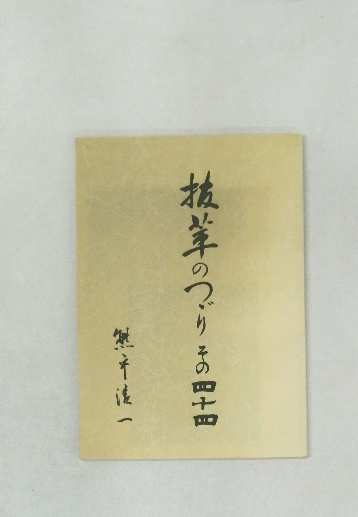 抜萃のつゞりその四十四
熊平清一